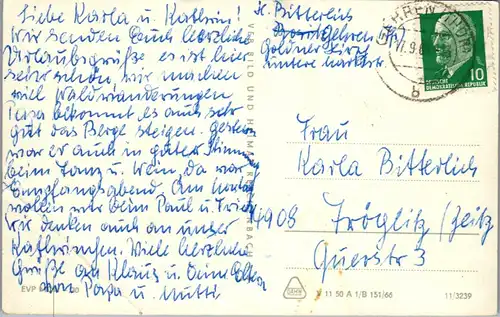 Liebe Karla u. Kathrin!
Wir senden Euch herzliche
Urlaubsgrüße. es ist hier
sehr schön, wir machen
viel Waldwanderungen
Papa bekommt es auch sehr
gut das Berge steigen. gestern
war er auch in guter Stimm
beim Tanz u. Wein, da war
Empfangsabend. Am
wollen wir beim Paul u.
Wir denken auch an unser
Kathrinchen. Viele herzliche
Grüße an Klaus u. Deine Eltern
von Papa u. Mutti
H. Bitterlich
Gehren (Th)
Goldner Hirsch
untere Marktstr.
GEHREN (THÜR)
b
DEUTSCHE
DEMOKRATISCHE REPUBLIK
10
Frau
Karla Bitterlich
4908 Tröglitz / Zeitz
Querstr 3
BILD UND HEIMAT REICHENBACH
EVP
V 11 50 A 1/B 151/66
11/3239